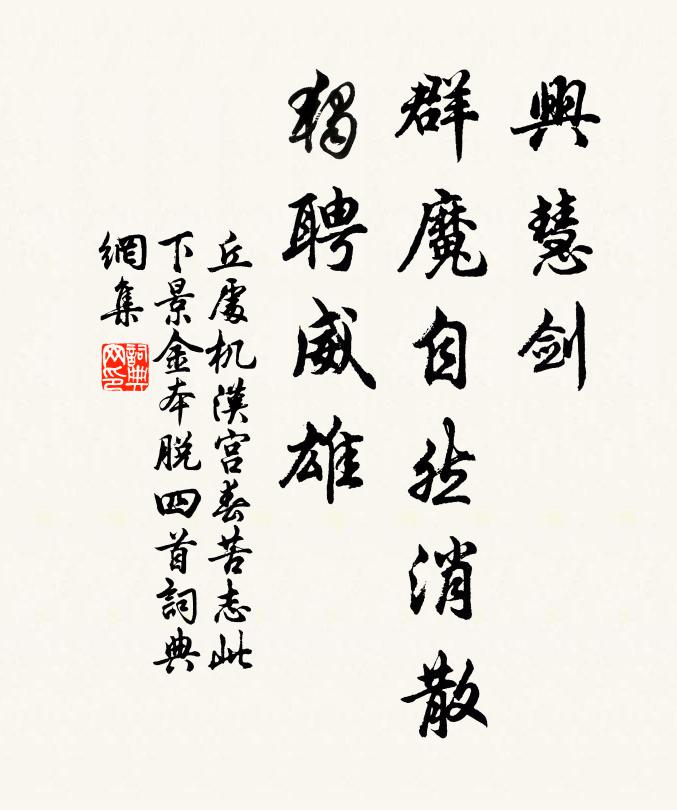 興慧劍
群魔自然消散
獨聘威雄
丘處机漢宮春苦志此
下景金本脱四首詞典
網集
詞典
网印